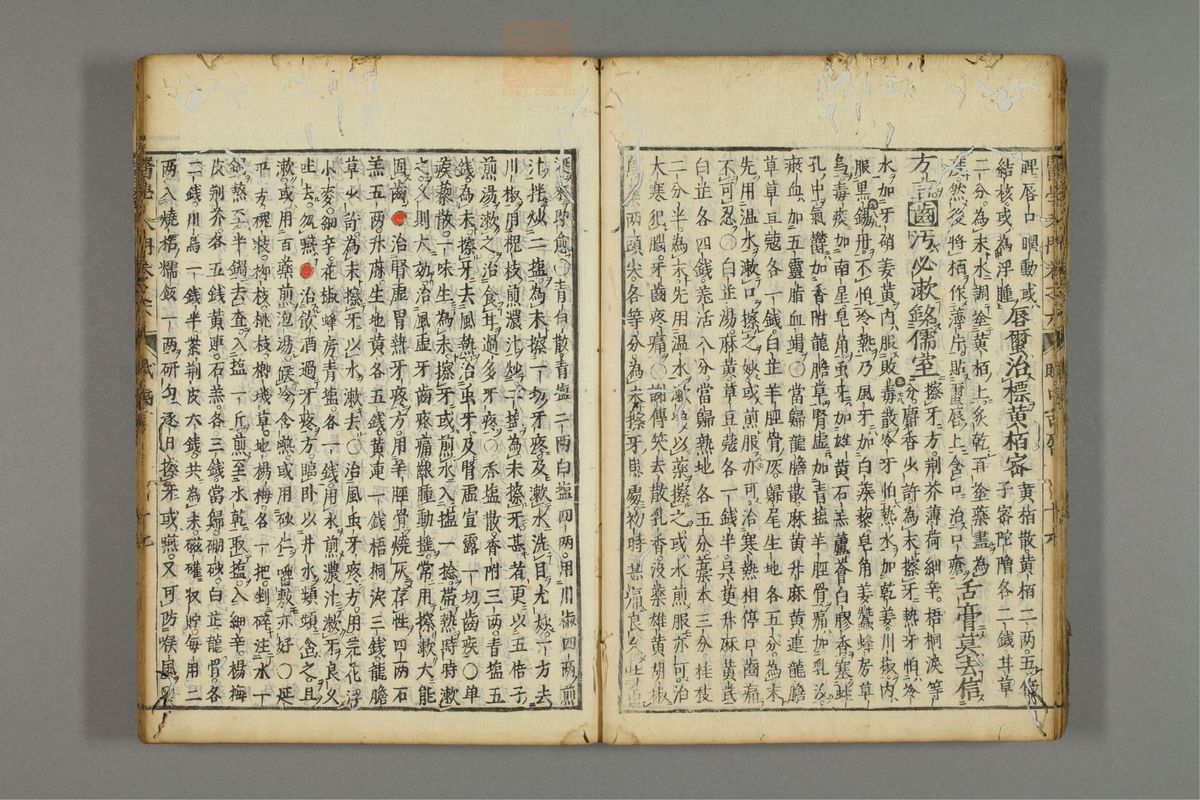 脾唇口瞤動或唇爾治標黄栢宻黄栢散黄栢二兩五倍
子宻陀僧各二錢甘草
二分為末水調塗黄栢上炙乾再塗藥盡為
度然後將栢作薄片貼唇上含口治口瘡舌膏莫去信
方詰齒污必漱銘儒室擦牙方荆芥薄荷細辛梧桐淚等
分麝香少許為末擦牙熱牙怕冷
水加牙硝姜黄内服敗毒散冷牙怕熱水加乾姜川椒内
服黒錫丹不怕冷熱乃風牙加白蒺藜皂角姜蠶蜂房草
烏毒痰加南星皂角虫牙加雄黄石羔蘆薈白膠香塞蛀
孔中氣鬱加香附龍膽草腎虚加青塩羊脛骨痛加乳没
瘀血加五靈脂血竭〇當歸龍膽散麻黄升麻黄連龍膽
草草豆蔻各一錢白芷羊脛骨灰歸尾生地各五分為末
先用温水漱口擦之妙或煎服亦可治寒熱相停口齒痛
不可忍〇白芷湯麻黄草豆蔻各一錢半吳茰升麻黄芪
白芷各四錢羗活八分當歸熱地各五分藁本三分桂枝
二分半為末先用温水漱口以藥擦之或水煎服亦可治
大寒犯腦牙齒疼痛〇謝傳笑去散乳香没藥雄黄胡椒
兩頭尖各等分為末擦牙患處初時甚痛良久
愈〇青白散青塩二兩白塩四兩用川椒四兩煎
汁拌炒二塩為末擦一切牙疼及漱水洗目尤妙一方去
川椒用槐枝煎濃汁炒二塩為末擦牙甚者更以五倍子
煎湯漱之治食甘過多牙疼〇香塩散香附三兩青塩五
錢為末擦牙去風熱治虫牙及腎虚宣露一切齒疾〇单
蒺藜散一味生為末擦牙或煎水入塩一捻帶熱時時漱
之又則大効治風虚牙齒疼痛齦腫動搖常用擦漱大能
固齒治腎虚胃熱牙疼方用羊脛骨燒灰存性四兩石
羔五兩升蔴生地黄各五錢黄連一錢梧桐淚三錢龍膽
草少許為末擦牙以水漱去〇治風虫牙疼方用芫花浮
小麥細辛花椒蜂房青塩各一錢用水煎濃汁漱牙良久
吐去勿嚥治飲酒過牙疼方臨卧以井水頻頻含之且
漱或用百藥煎泡湯候冷含嚥或用砂仁嚼數亦好〇延
平方槐枝柳枝桃枝柳塊草地楊梅各一把剉碎注水一
鍋熬至半鍋去查入塩一斤煎至水乾取塩入細辛楊梅
皮荆芥各五錢黄連石羔各三錢當歸硼砂白芷龍骨各
二錢川烏一錢半荆皮六錢共為末磁罐収貯每用二
兩入燒梧糯飯一兩研勻逐日擦牙或嚥又可防喉風